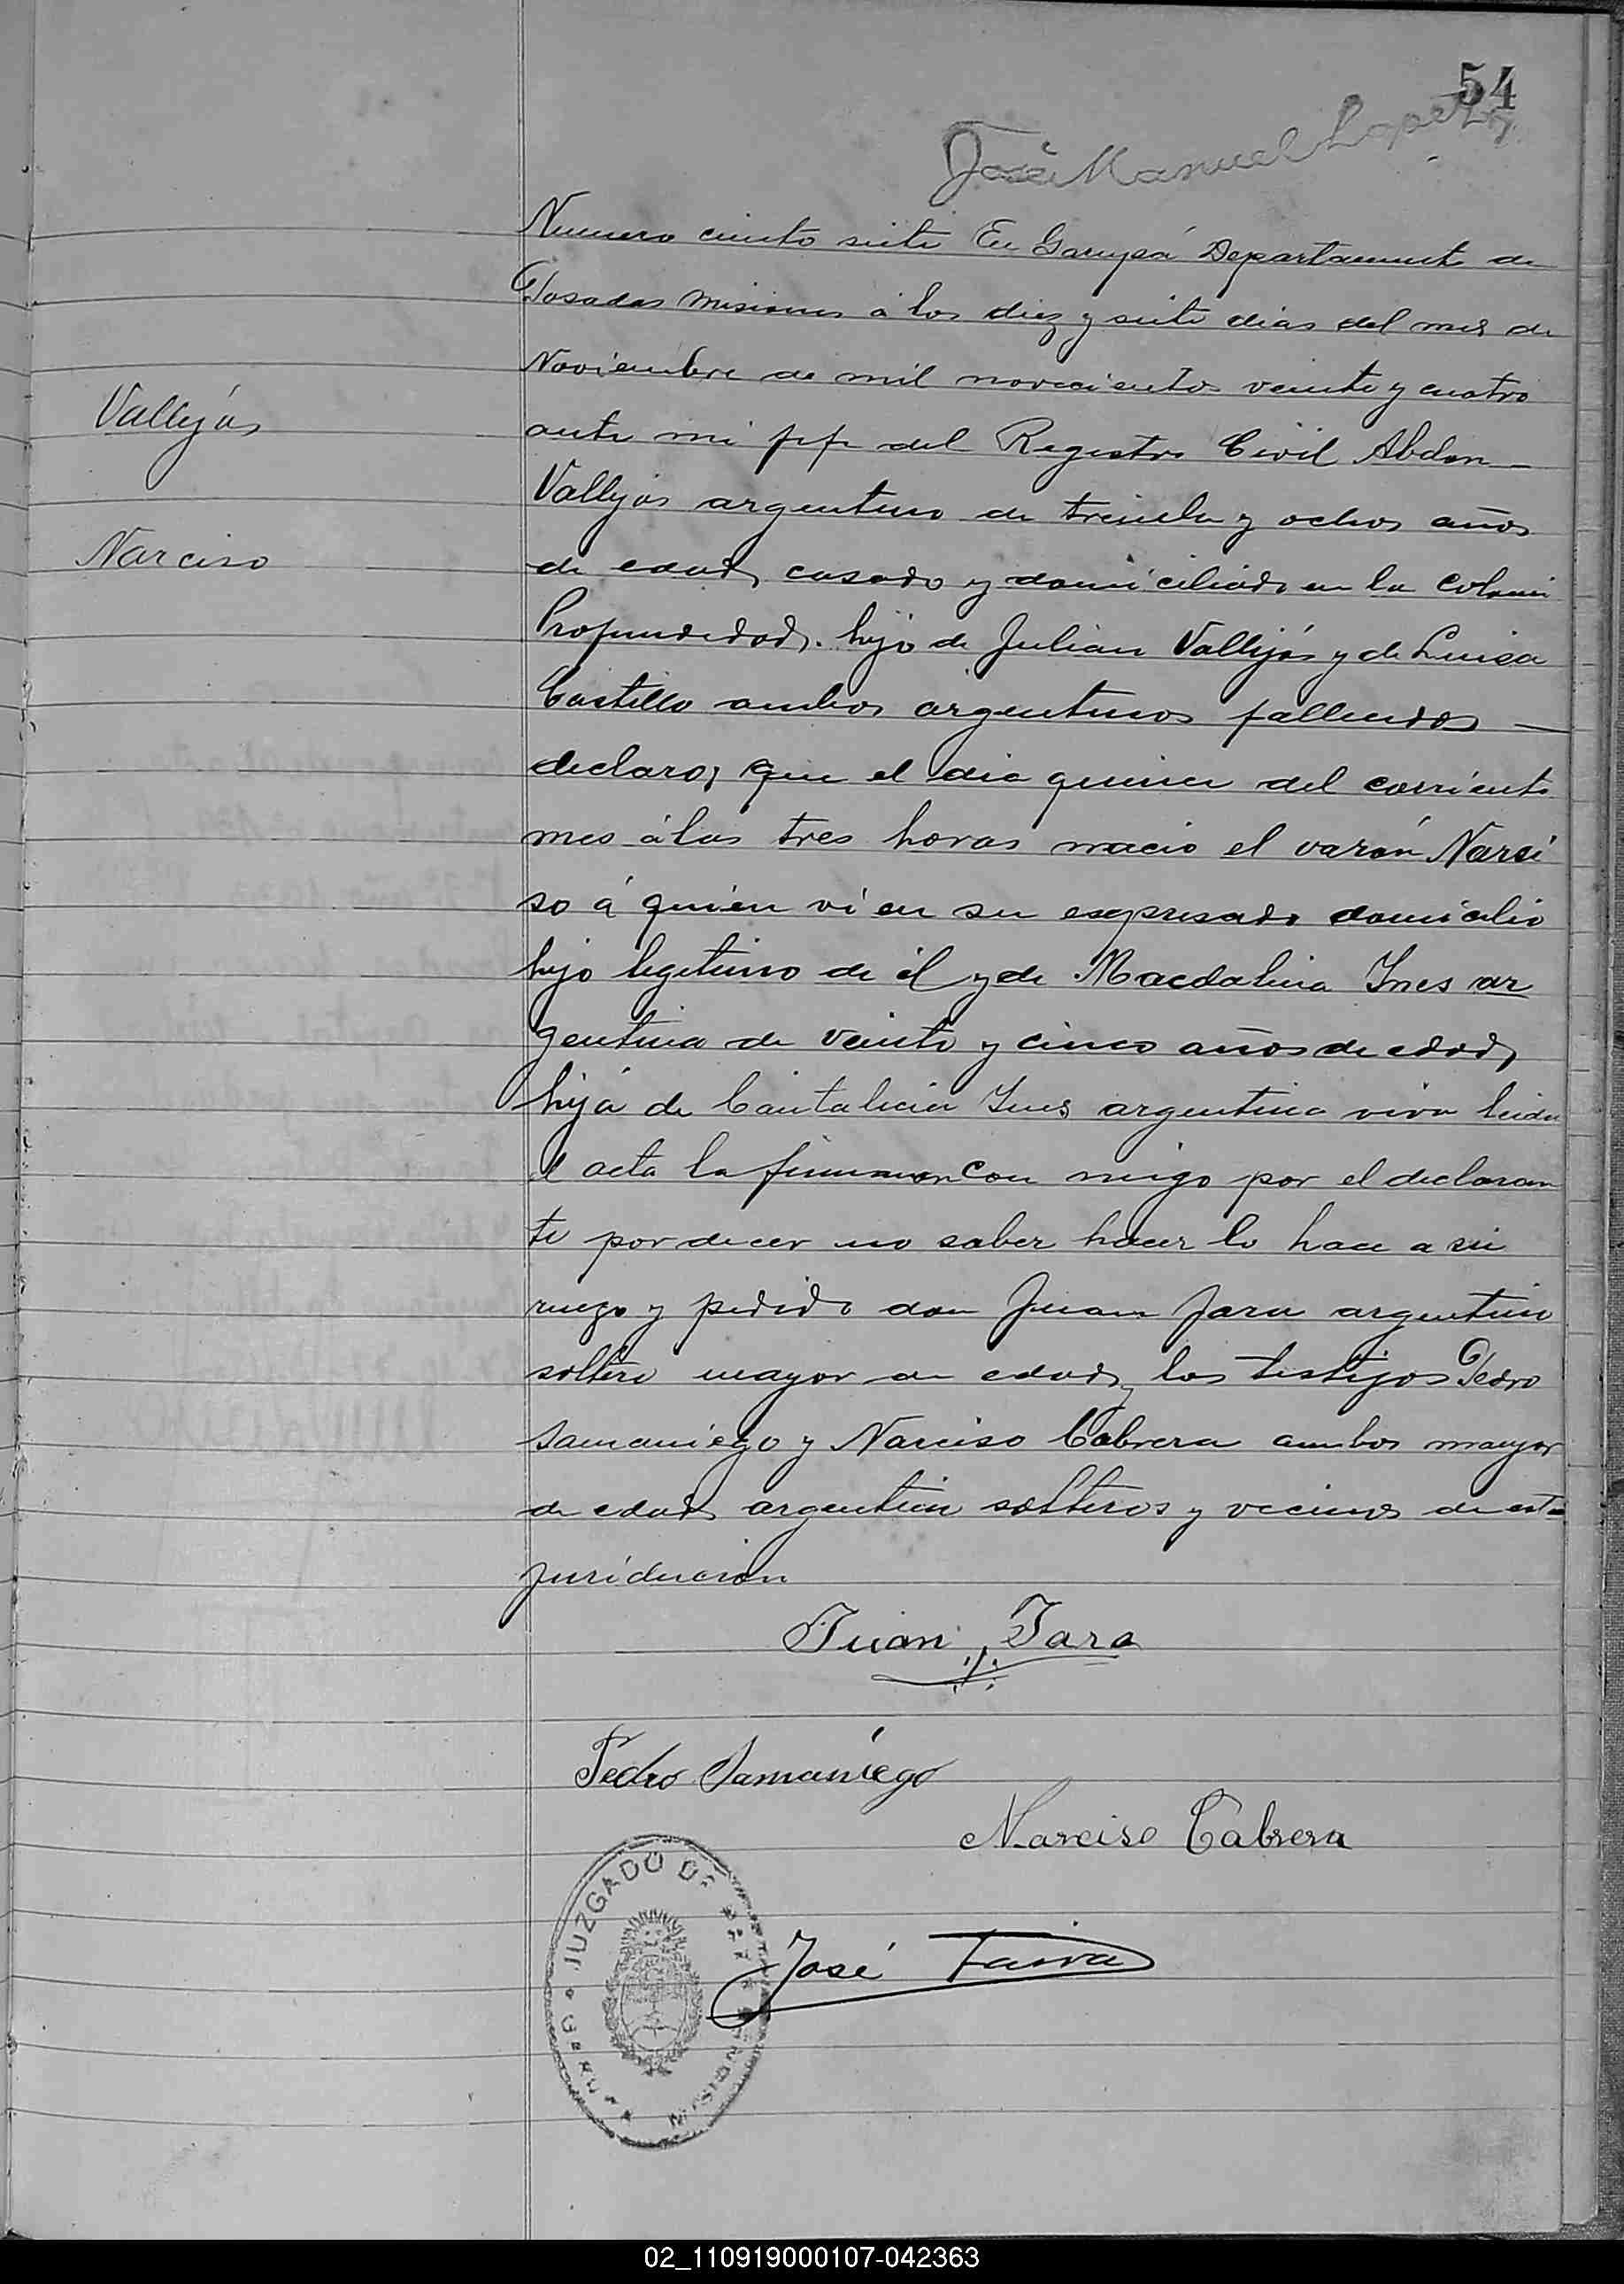 54
José Manuel Lopez
Numero ciento siete En Garupá Departamento de
Posadas Misiones á los diez y siete dias del mes de
Noviembre de mil novecientos veinte y cuatro
Vallejos
ante mi jefe del Registro Civil Abdon
Vallejos argentino de treinta y ochos años
Narciso
de edad, casado y domiciliado en la coloni
Profundidad. hijo de Julian Vallejos y de Luisa
Castillo ambos argentinos fallecidos
declaro, que el dia quince del corriente
mes á las tres horas nacio el varón Narci
so á quien vi en su esepresado domicilio
hijo legitimo de él y de Macdalina Ines ar
gentina de veinte y cinco años de edad,
hija de Cantalicia Ines argentina viva leida
el acta la firmaron con migo por el declaran
te por decer no saber hacer lo hace a su
ruego y pedido don Juan Jara argentino
soltero mayor de edad, los testijos Pedro
Samaniego y Narciso Cabrera ambos mayor
de edad, argentino solteros y vecinos de esta
juriducion
Juan Jara
Pedro Samaniego
Narciso Cabrera
José
JUZGADO DE PAZ
GARUPA
MISIONES
02_110919000107-042363